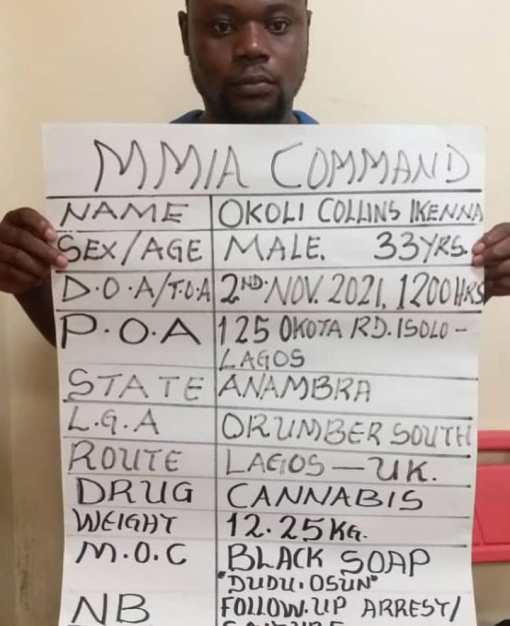 MMIA COMMAND
NAME OKOLI COLLINS IKENNA
SEX/AGE MALE. 33YRS.
D.O.A/T.O.A 2ND. NOV. 2021, 1200HRS
P.O.A 125 OKOTA RD. ISOLO -
LAGOS
STATE ANAMBRA
L.G.A ORUMBER SOUTH
ROUTE LAGOS — U.K.
DRUG CANNABIS
WEIGHT 12.25KG.
M.O.C BLACK SOAP
"DUDU.OSUN"
NB FOLLOW.UP ARREST/